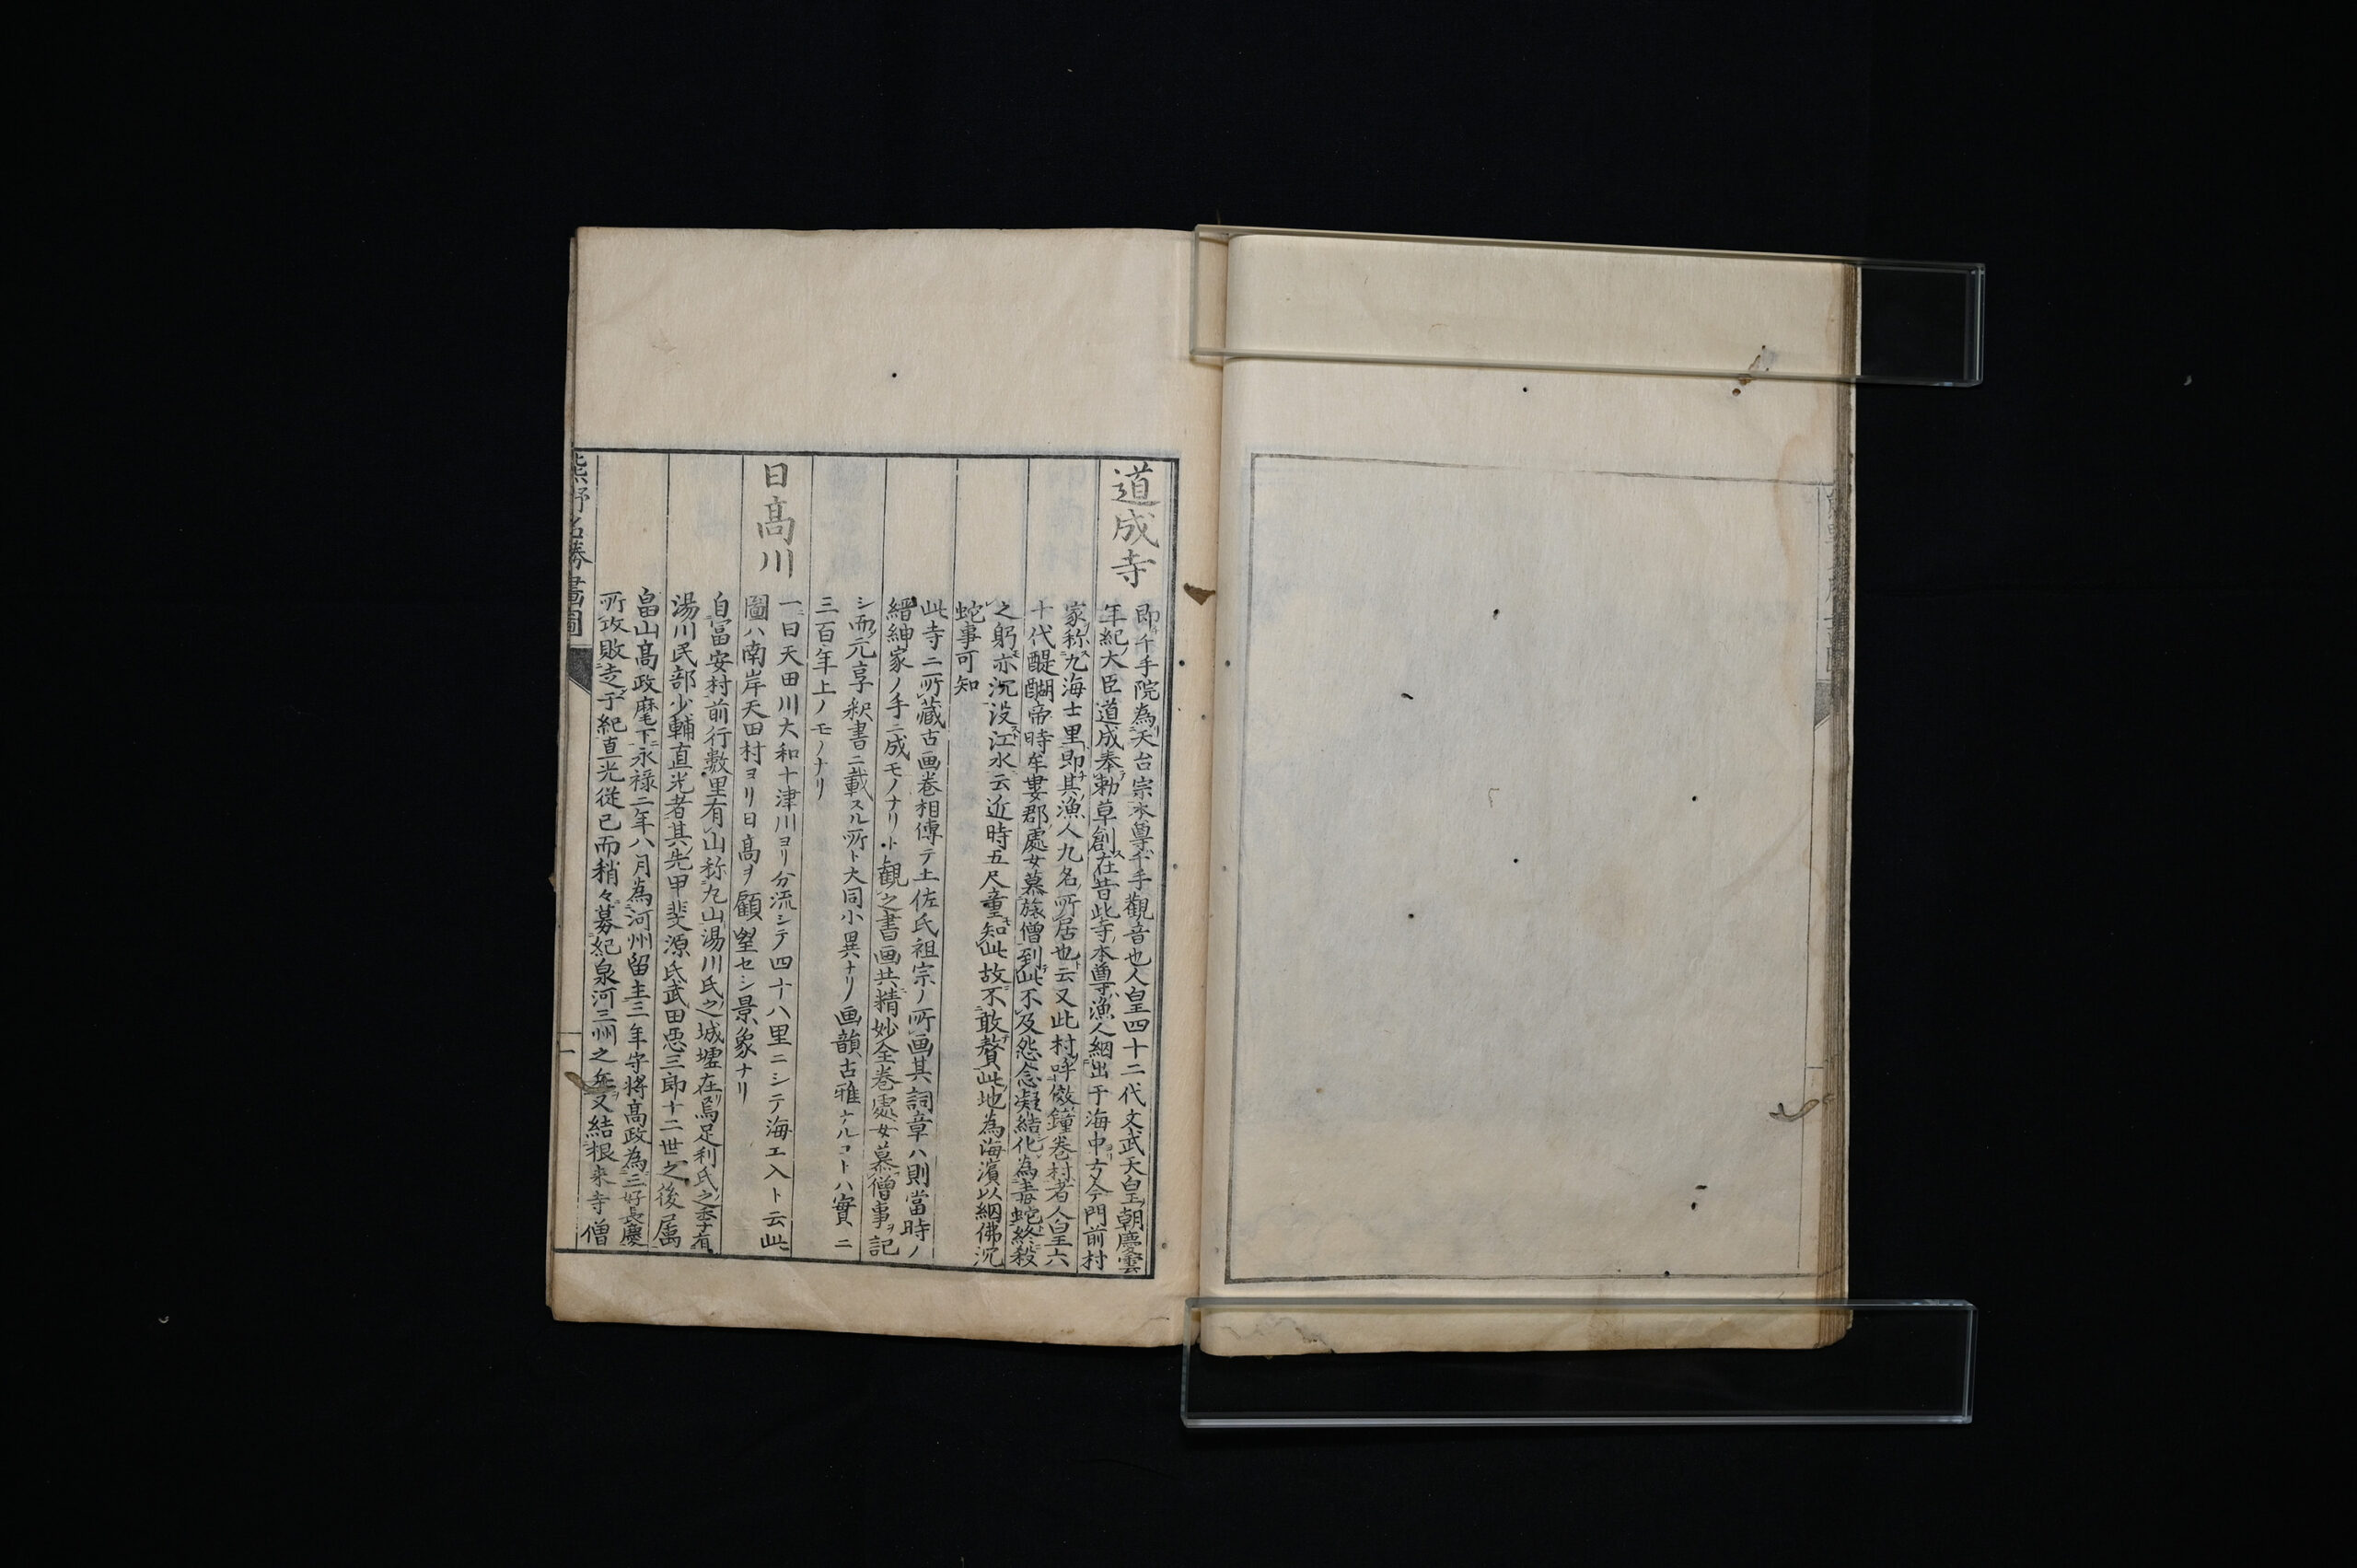 道成寺
即千手院為天台宗本尊千手觀音也人皇四十二代文武天皇朝慶雲
年紀大臣道成奉勅草創在昔此寺本尊漁人網出于海中方今門前村
家称九海士里即其漁人九名所居也云又此村呼傚鐘巻村者人皇六
十代醍醐帝時牟婁郡處女慕旅僧到此不及怨念凝結化為毒蛇終殺
之躬亦沉没江水云近時五尺童知此故不敢贅此地為海濱以網佛沉
蛇事可知
此寺ニ所蔵古画巻相傳テ土佐氏祖宗ノ所画其詞章ハ則當時ノ
縉紳家ノ手ニ成モノナリト觀之書画共精妙全巻處女慕僧事ヲ記
シ而元亨釈書ニ載スル所ト大同小異ナリ画韻古雅ナルコトハ實ニ
三百年上ノモノナリ
日高川
一曰天田川大和十津川ヨリ分流シテ四十八里ニシテ海エ入ト云此
圖ハ南岸天田村ヨリ日高ヲ顧望セシ景象ナリ
自冨安村前行數里有山称九山湯川氏之城墟在焉足利氏之季有
湯川民部少輔直光者其先甲斐源氏武田惡三郎十二世之後属
畠山高政麾下永禄二年八月為河州留主三年守将高政為三好長慶
所攻敗走于紀直光従已而稍々募紀泉河三州之兵又結根来寺僧
熊野名勝畵圖
一